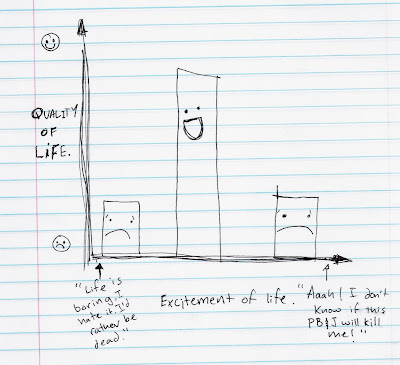 QUALITY
OF
LIFE.
"Life is
boring, I
hate it. I'd
rather be
dead."
Excitement of life.
"Aaah! I don't
know if this
PB&J will kill
me!"